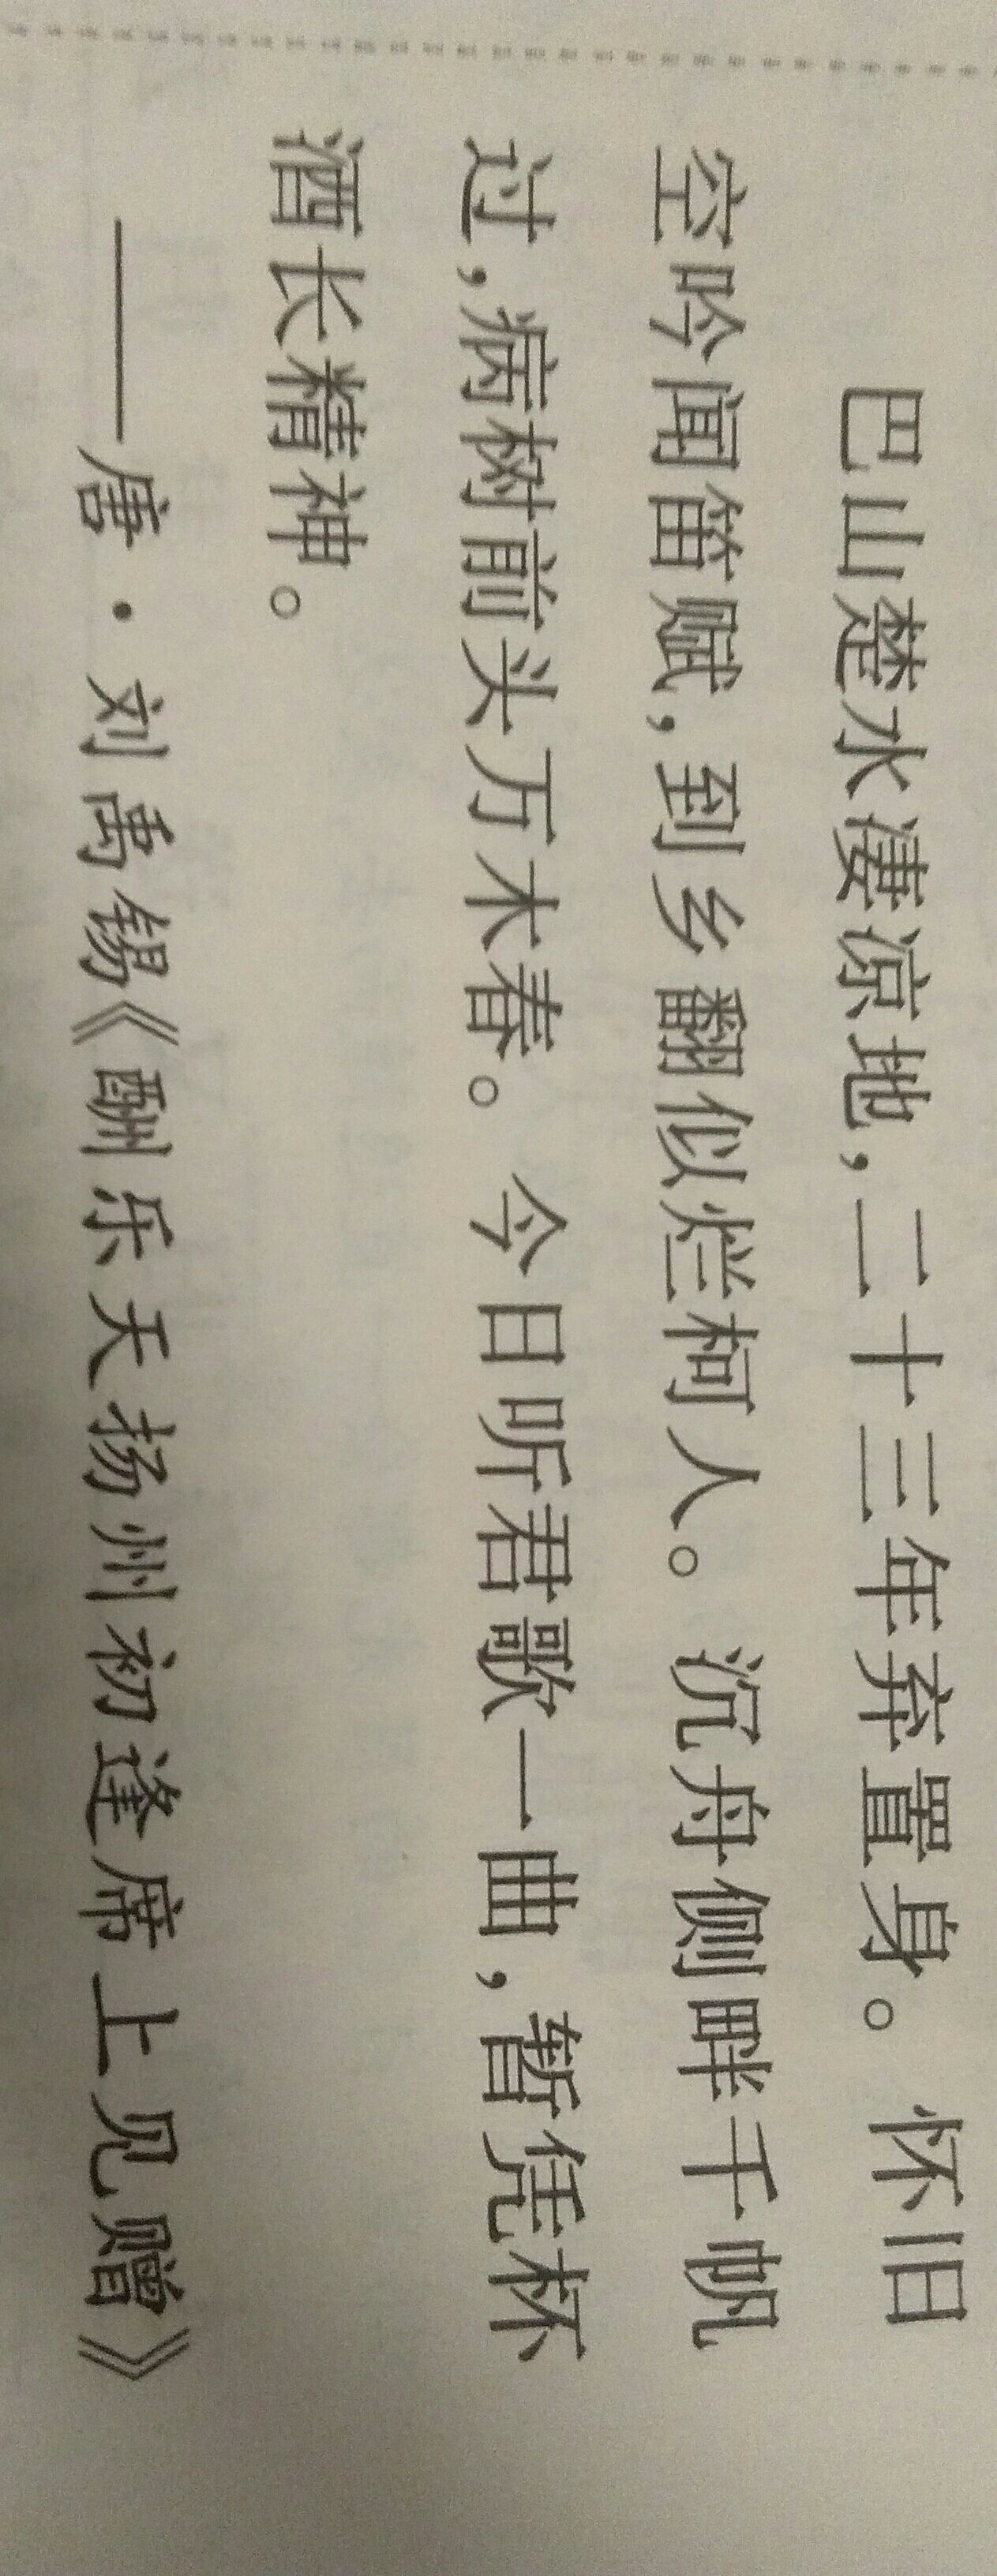 巴山楚水凄凉地,二十三年弃置身。怀旧
空吟闻笛赋,到乡翻似烂柯人。沉舟侧畔千帆
过,病树前头万木春。今日听君歌一曲,暂凭杯
酒长精神。
——唐·刘禹锡《酬乐天扬州初逢席上见赠》